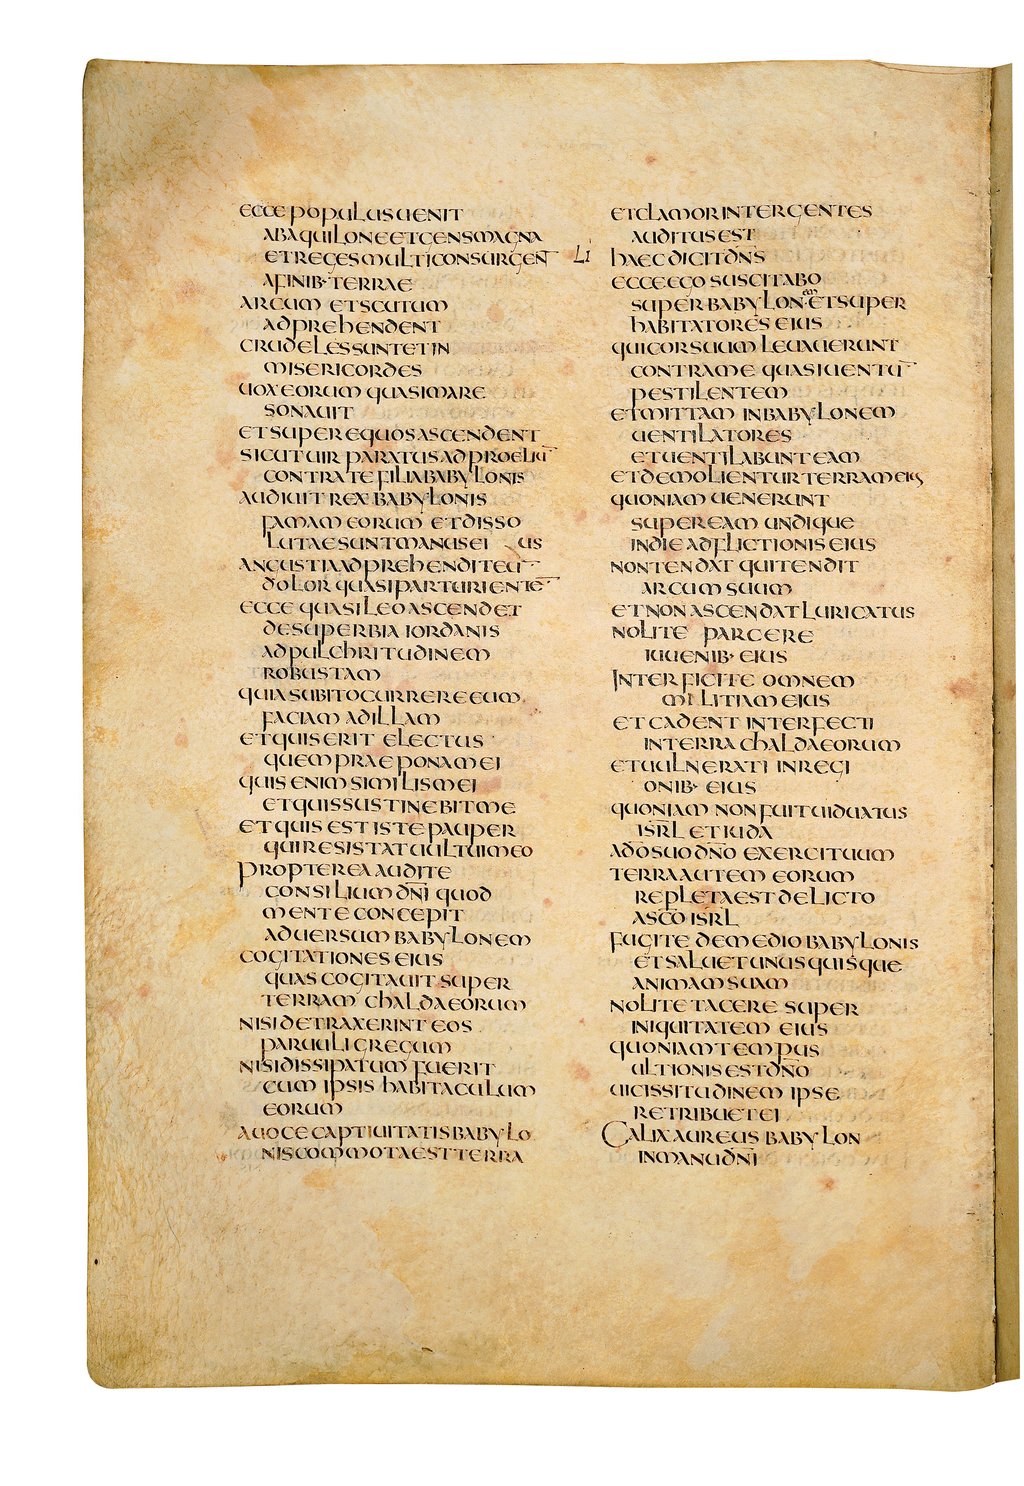 ECCE POPULUS UENIT
ABAQUILONE ET GENS MAGNA
ET REGES MULTI CONSURGEN̄
A FINIB· TERRAE
ARCUM ET SCUTUM
ADPREHENDENT
CRUDELES SUNT ET IN
MISERICORDES
UOX EORUM QUASI MARE
SONAUIT
ET SUPER EQUOS ASCENDENT
SICUT UIR PARATUS AD PROELIŪ
CONTRA TE FILIA BABYLONIS
AUDIUIT REX BABYLONIS
FAMAM EORUM ET DISSO
LUTAE SUNT MANUS EI US
ANGUSTIA ADPREHENDIT EŪ
DOLOR QUASI PARTURIENTĒ
ECCE QUASI LEO ASCENDET
DE SUPERBIA IORDANIS
AD PULCHRITUDINEM
ROBUSTAM
QUIA SUBITO CURRERE EUM
FACIAM AD ILLAM
ET QUIS ERIT ELECTUS
QUEM PRAEPONAM EI
QUIS ENIM SIMILIS MEI
ET QUIS SUSTINEBIT ME
ET QUIS EST ISTE PAUPER
QUI RESISTAT UULTUI MEO
PROPTEREA AUDITE
CONSILIUM DN̄I QUOD
MENTE CONCEPIT
ADUERSUM BABYLONEM
COGITATIONES EIUS
QUAS COGITAUIT SUPER
TERRAM CHALDAEORUM
NISI DETRAXERINT EOS
PARUULI GREGUM
NISI DISSIPATUM FUERIT
CUM IPSIS HABITACULUM
EORUM
A UOCE CAPTIUITATIS BABYLO
NIS COMMOTA EST TERRA
ET CLAMOR INTER GENTES
AUDITUS EST
LI HAEC DICIT DN̄S
ECCE EGO SUSCITABO
SUPER BABYLON·EM ET SUPER
HABITATORES EIUS
QUI COR SUUM LEUAUERUNT
CONTRA ME QUASI UENTŪ
PESTILENTEM
ET MITTAM IN BABYLONEM
UENTILATORES
ET UENTILABUNT EAM
ET DEMOLIENTUR TERRAM EIUS
QUONIAM UENERUNT
SUPER EAM UNDIQUE
IN DIE ADFLICTIONIS EIUS
NON TENDAT QUI TENDIT
ARCUM SUUM
ET NON ASCENDAT LURICATUS
NOLITE PARCERE
IUUENIB· EIUS
INTERFICITE OMNEM
MILITIAM EIUS
ET CADENT INTERFECTI
IN TERRA CHALDAEORUM
ET UULNERATI IN REGI
ONIB· EIUS
QUONIAM NON FUIT UIDUATUS
ISR̄L ET IUDA
A DO SUO DN̄O EXERCITUUM
TERRA AUTEM EORUM
REPLETA EST DELICTO
A SC̄O ISR̄L
FUGITE DE MEDIO BABYLONIS
ET SALUET UNUSQUISQUE
ANIMAM SUAM
NOLITE TACERE SUPER
INIQUITATEM EIUS
QUONIAM TEMPUS
ULTIONIS EST DN̄O
UICISSITUDINEM IPSE
RETRIBUET EI
CALIX AUREUS BABYLON
IN MANU DN̄I